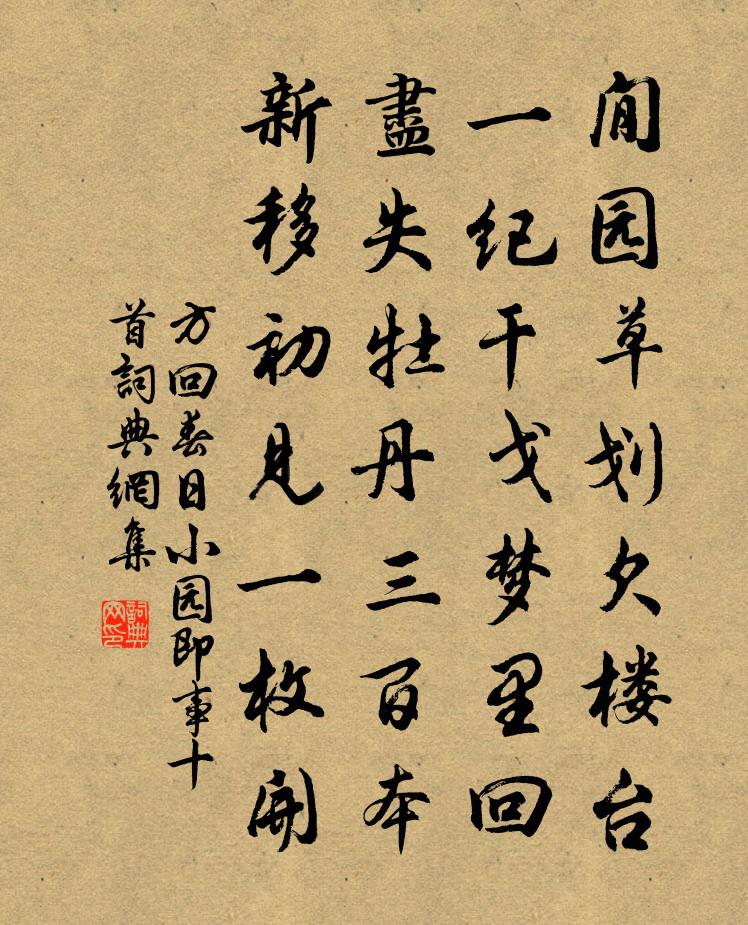 闲园草划欠楼台
一纪干戈梦里回
盡失牡丹三百本
新移初見一枚開
方回春日小园即事十
首詞典網集
詞典网印